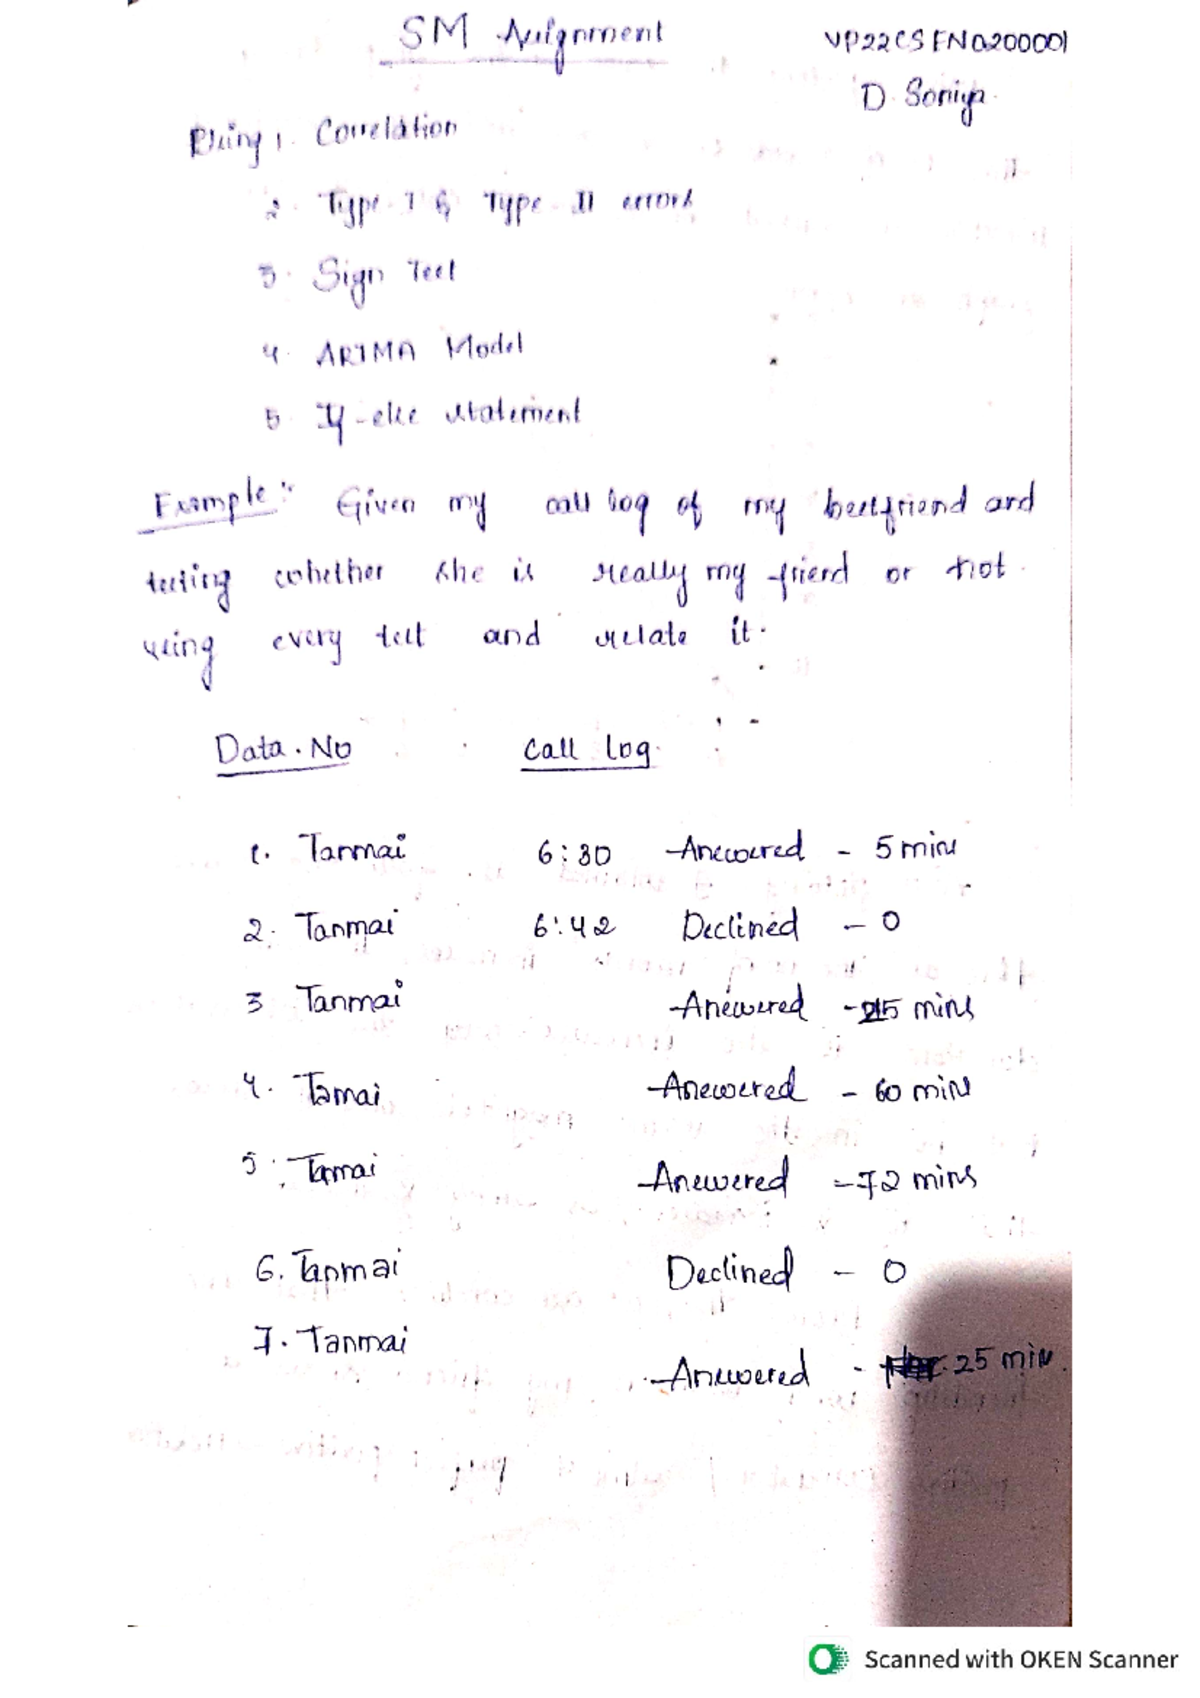 SM Assignment
VP22CSEN0200001
D. Soniya.
Using 1. Correlation
2. Type-I & Type-II errors
3. Sign Test
4. ARIMA Model
5. If-else statement
Example:- Given my call log of my bestfriend and
testing whether she is really my friend or not.
using every test and relate it.
Data. No Call log.
1. Tanmai 6:30 Answered - 5 mins
2. Tanmai 6:42 Declined - 0
3 Tanmai Answered - 15 mins
4. Tamai Answered - 60 mins
5. Tamai Answered - 72 mins
6. Tanmai Declined - 0
7. Tanmai Answered - 25 min.
Scanned with OKEN Scanner